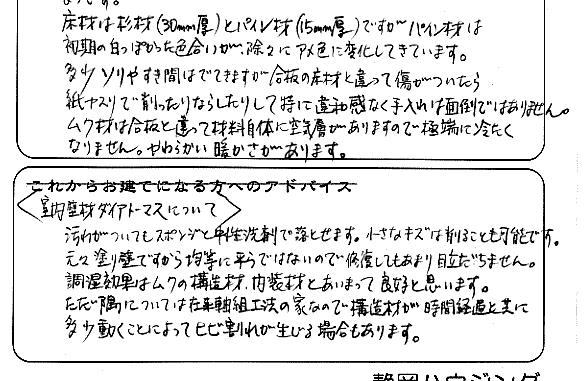 床材は杉材(30mm厚)とパイン材(15mm厚)ですがパイン材は
初期の白っぽかった色合いが、除々にアメ色に変化してきています。
多少ソリやすき間はでてきますが合板の床材と違って傷がついたら
紙ヤスリで削ったりならしたりして特に違和感なく手入れは面倒ではありません。
ムク材は合板と違って材料自体に空気層がありますので極端に冷たく
なりません。やわらかい暖かさがあります。
これからお建てになる方へのアドバイス
室内壁材ダイアトーマスについて
汚れがついてもスポンジと中性洗剤で落とせます。小さなキズは削ることも可能です。
元々塗り壁ですから均等に平らではないので修復してもあまり目立だちません。
調湿効果はムクの構造材、内装材とあいまって良好と思います。
ただ隅については在来軸組工法の家なので構造材が時間経過と共に
多少動くことによってヒビ割れが生じる場合もあります。
静岡ハウジング